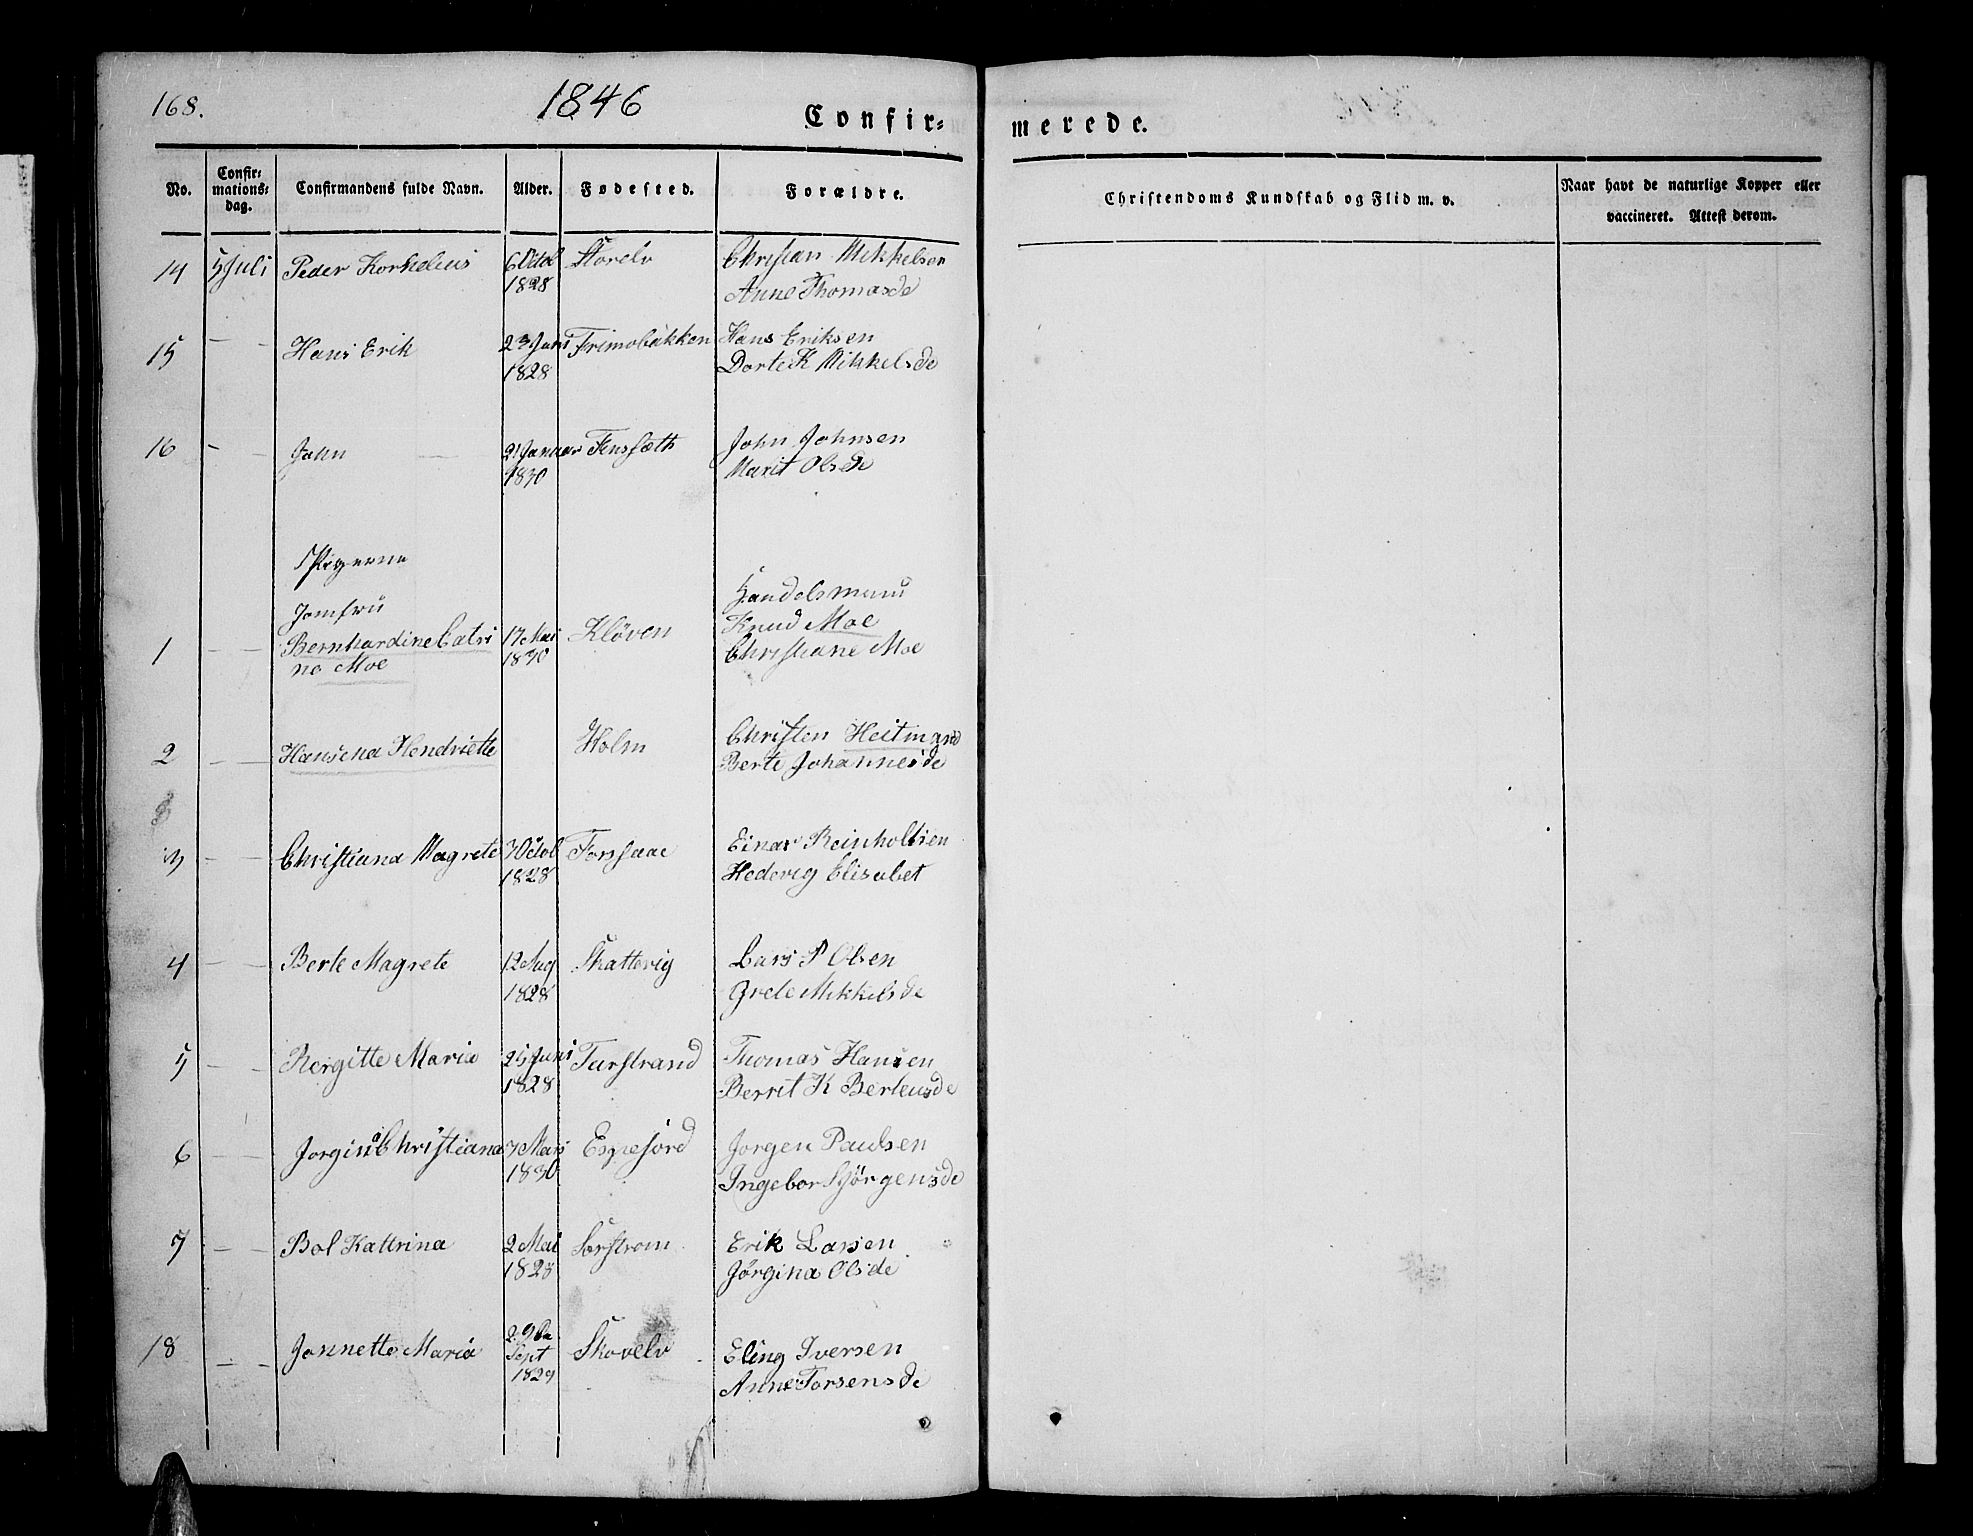 168.
1846
Confir- merede.
No.
Confir- mations- dag.
Confirmandens fulde Navn.
Alder.
Fødested.
Forældre.
Christendoms Kundskab og Flid m. v.
Naar havt de naturlige Kopper eller vaccineret. Attest derom.
14 5 Juli Peder Kornelius 6 Octob Storelv Christian Mikkelsen
1828 Anne Thomasde
15 — — Hans Erik 23 Juni Frimobakken Hans Eriksen
1828 Dorte K Mikkelsde
16 — — John — 2 Januar Finsæth John Johnsen
1830 Marit Olsde
Pigerne
Jomfru Handelsmand
1 — — Bernhardine Catri 17 Mai Kløven Knud Moe
ne Moe 1830 Christiane Moe
2 — — Hansena Hendriette Holm Christen Heitmand
Berte Johannesde
3
3 — — Christiana Magrete 7 Octob Forsaae Einar Reinholtsen
1828 Hedevig Elisabet
4 — — Berte Magrete 12 Aug Skattevig Lars P Olsen
1828 Grete Mikkelsde
5 — — Bergitte Maria 25 Juni Turstrand Thomas Hansen
1828 Berrit K Berteusde
6 — — Jorgina Christiana 7 Mars Espefjord Jorgen Paulsen
1830 Ingebor S Jörgensde
7 — — Bol Kattrina 2 Mai Sørstrøm Erik Larsen
1828 Jørgina Olsde
18 — — Jonnette Maria Sept Skovelv Eling Iversen
1829 Anne Torsensde